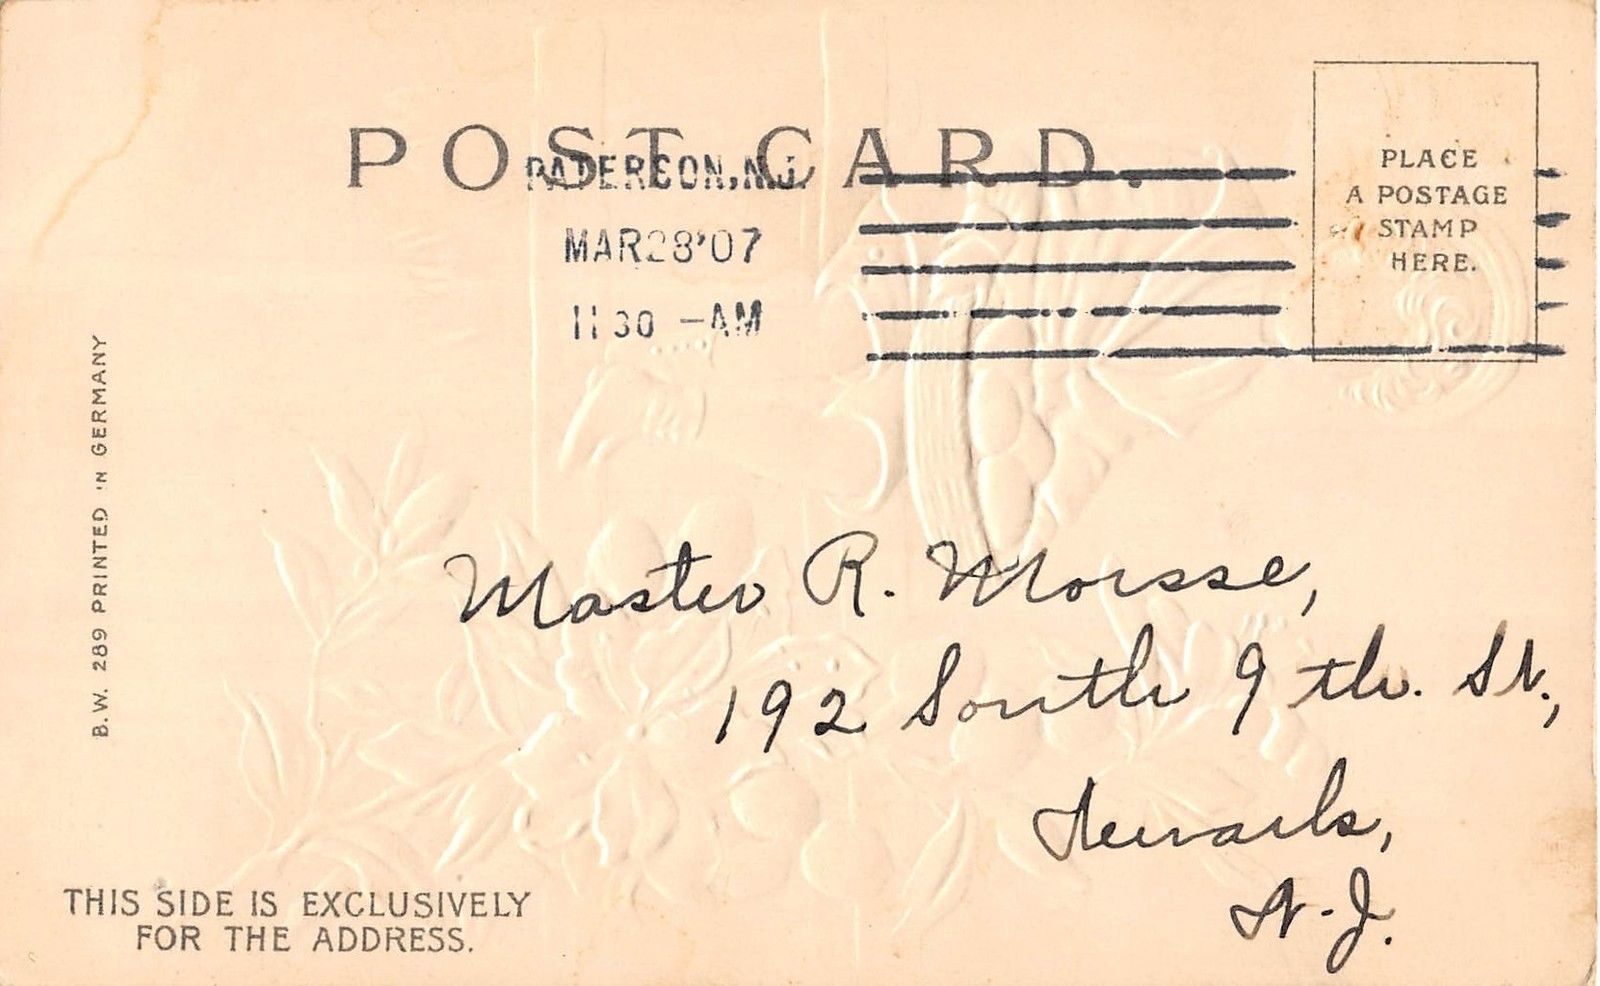 POST CARD.
PATERSON, N.J.
MAR 28 '07
11 30 -AM
PLACE
A POSTAGE
STAMP
HERE.
B.W. 289 PRINTED IN GERMANY
Master R. Morsse,
192 South 9th. St.,
Newark,
N.J.
THIS SIDE IS EXCLUSIVELY
FOR THE ADDRESS.